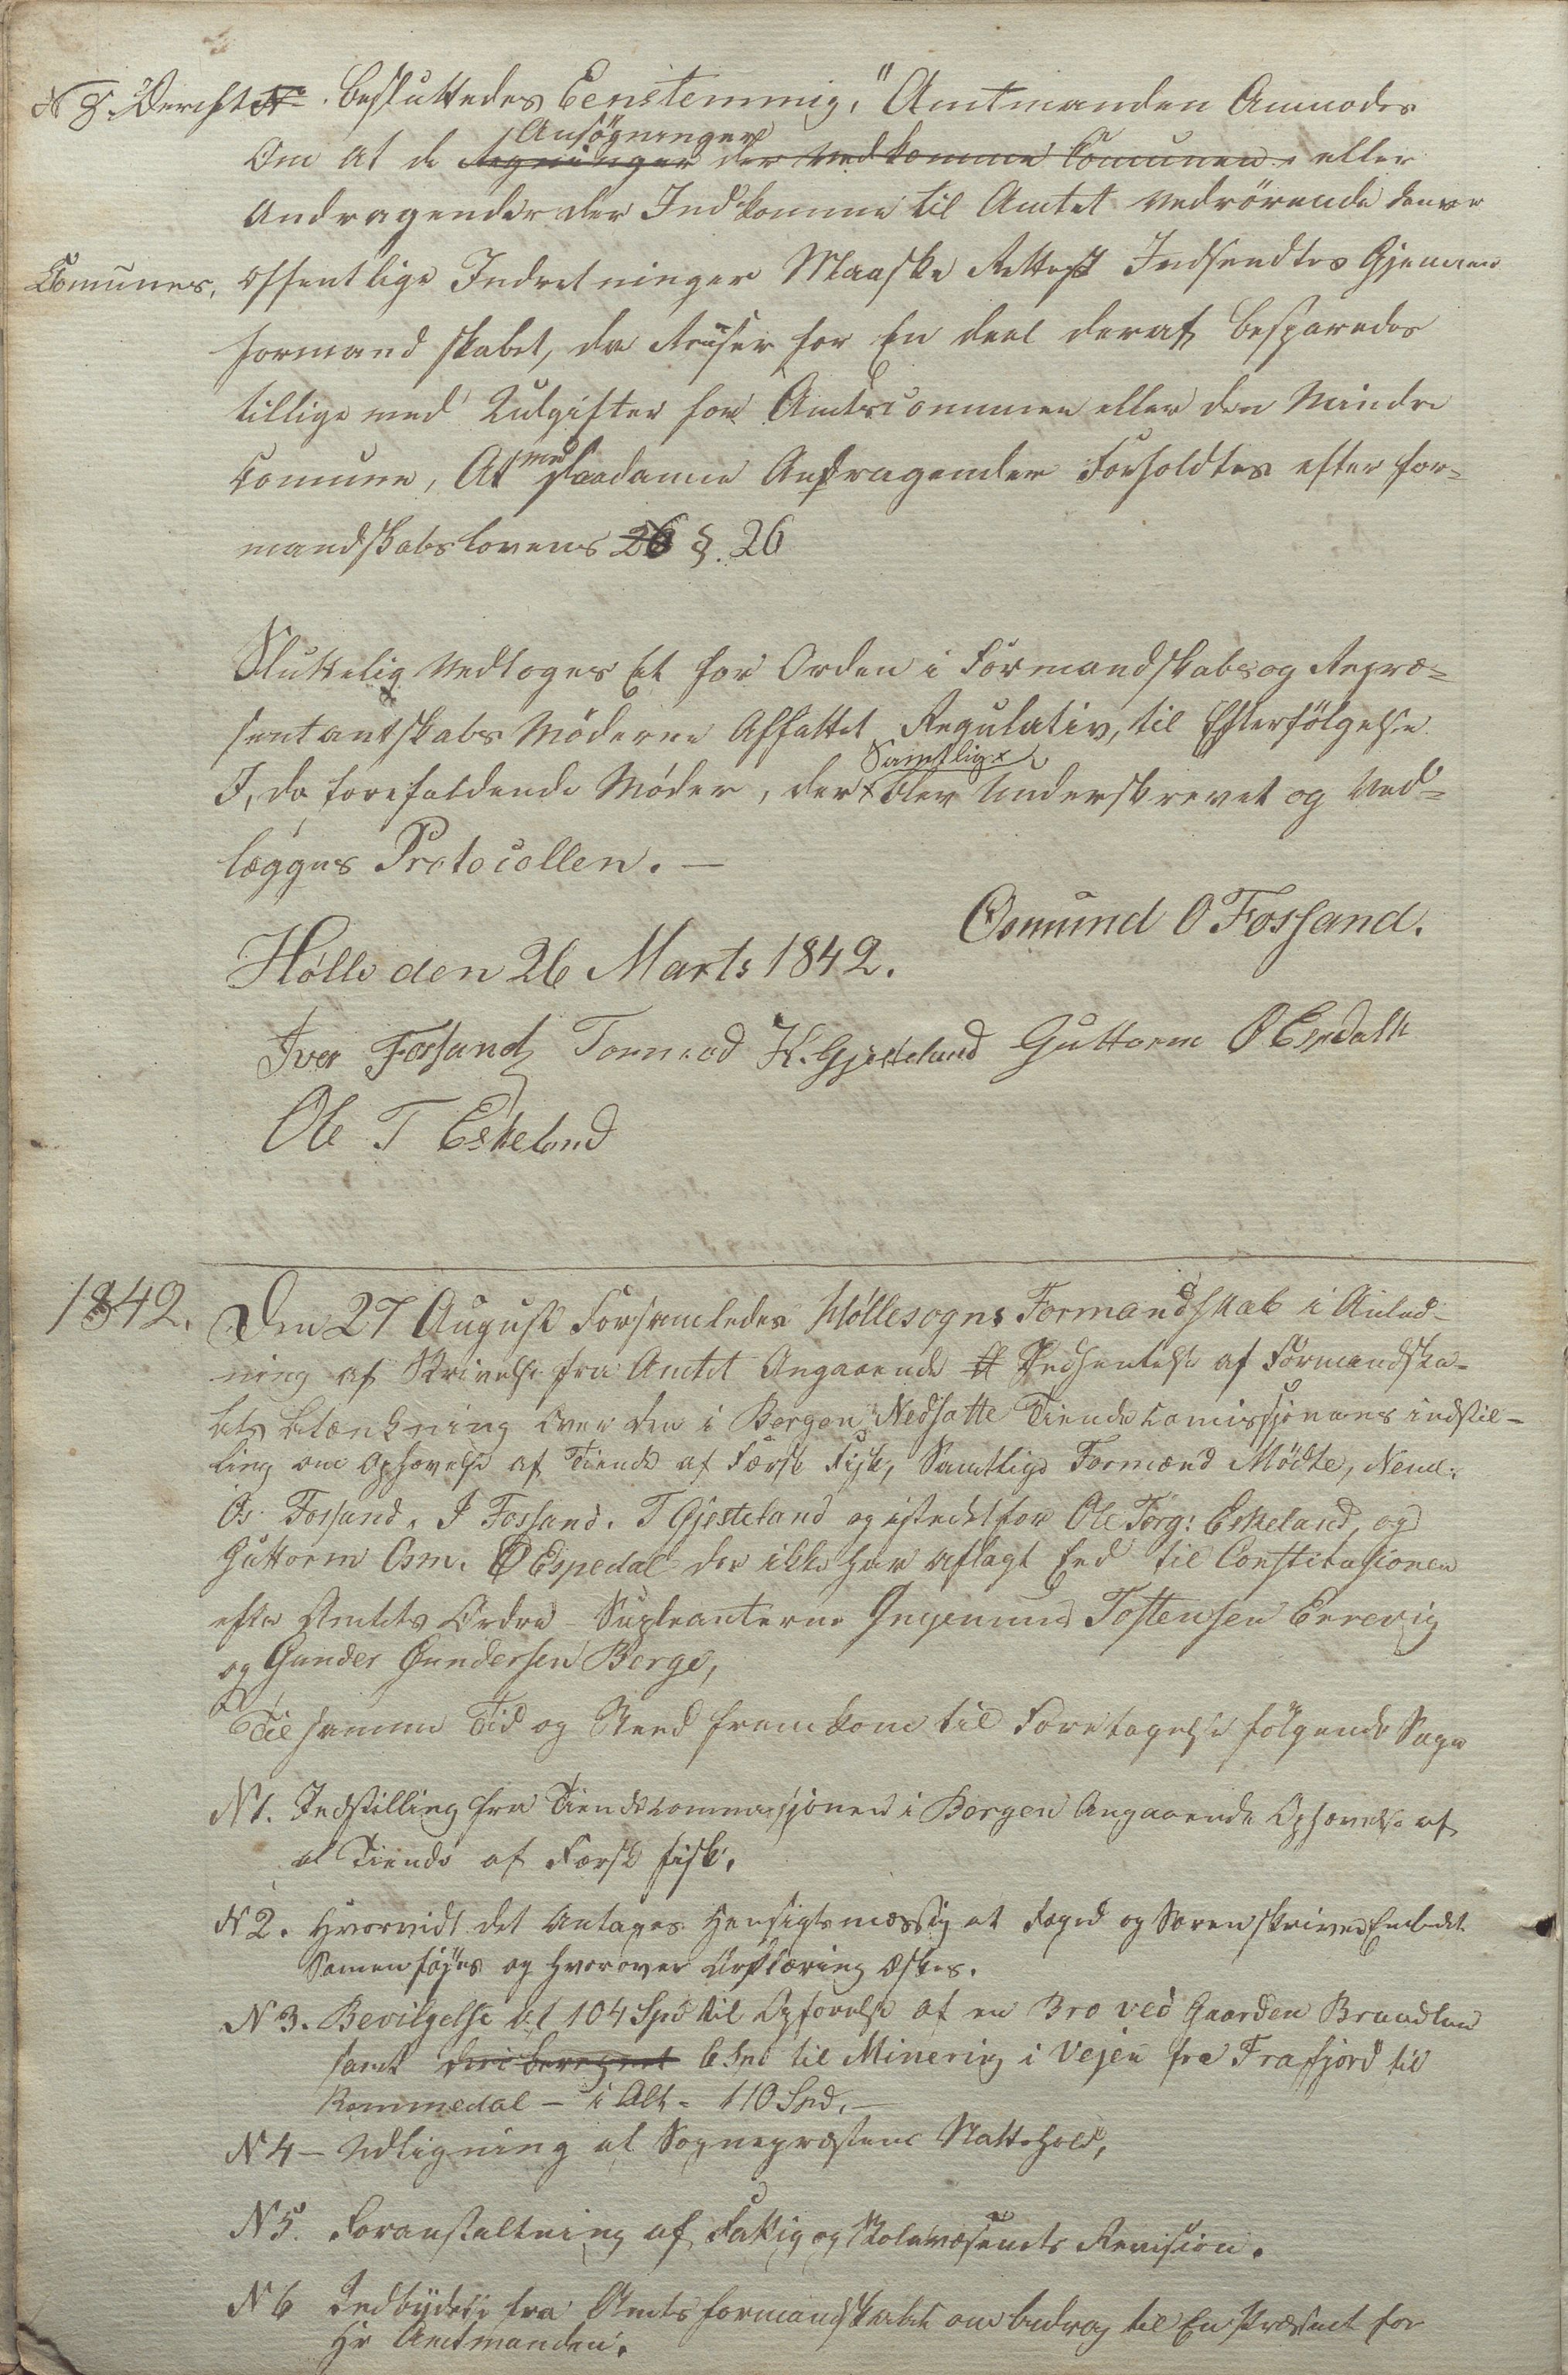 N 8. besluttedes Eenstemmig, "Amtmanden Anmodes
Ansögninger
Om at de der vedkomme Comunen eller
Andragender der Indkomme til Amtet vedrörende denne
Comunes, offentlige Indretninger Maaske Rettest Indsendtes Gjennem
formandskabet, da Reiser for En deel deraf besparedes
tillige med Udgifter for Amtscommunen eller den Mindre
Comune, At med saadanne Andragender Forholdtes efter for-
mandskabslovens 26 §. 26
Sluttelig Vedtoges Et for Orden i Formandskabs og Repræ-
sentantskabs Möderne Affattet Regulativ, til Efterfölgelse
Samtlige
I, de forefaldende Möder, der blev Underskrevet og Ved-
lægges Protocollen. —
Osmund O Fossand.
Hölle den 26 Marts 1842.
Iver Fossand Tormod K. Gjesteland Guttorm O Espedall
Ole T Eskeland
1842. Den 27 August Forsamledes Höllesogns Formandskab i Anled-
ning af Skrivelse fra Amtet Angaaende Indsendelse af Formandska-
bets Betænkning over den i Bergen Nedsatte Tiende Comissjonens indstil-
ling om Ophævelse af Tiende af Færsk Fisk, Samtlige Formænd Mödte, Neml:
Os. Fossand. I Fossand. T Gjesteland og istedetfor Ole Torg: Eskeland, og
Guttorm Osm. Espedal der ikke har aflagt Eed til Constitusionen
efter Amtets Ordre - Supleanterne Ingemund Tostensen Erevig
og Gunder Gundersen Berge,
Til samme Tid og Sted fremkom til Foretagelse fölgende Sager
N 1. Indstilling fra Tiendecommissjonen i Bergen Angaaende Ophævelse af
al Tiende af Færsk fisk.
N 2. Hvorvidt det Antages Hensigtsmæssig at Foged og Sorenskriver Embedet
Samenföjes og hvorover Erklæring Æskes.
N 3. Bevilgelse af 104 Spd til Opförelse af en Bro ved Gaarden
samt deri beregnet 6 Spd til Minering i Vejen fra Frafjord til
Rommedal - i Alt - 110 Spd. —
N 4 - Udligning af Sognepræstens Nattehold,
N 5. Foranstaltning af Fattig og Skolevæsenets Revision.
N 6 Indbydelse fra Amtsformandskabet om bidrag til En Præsent for
Hr Amtmanden.